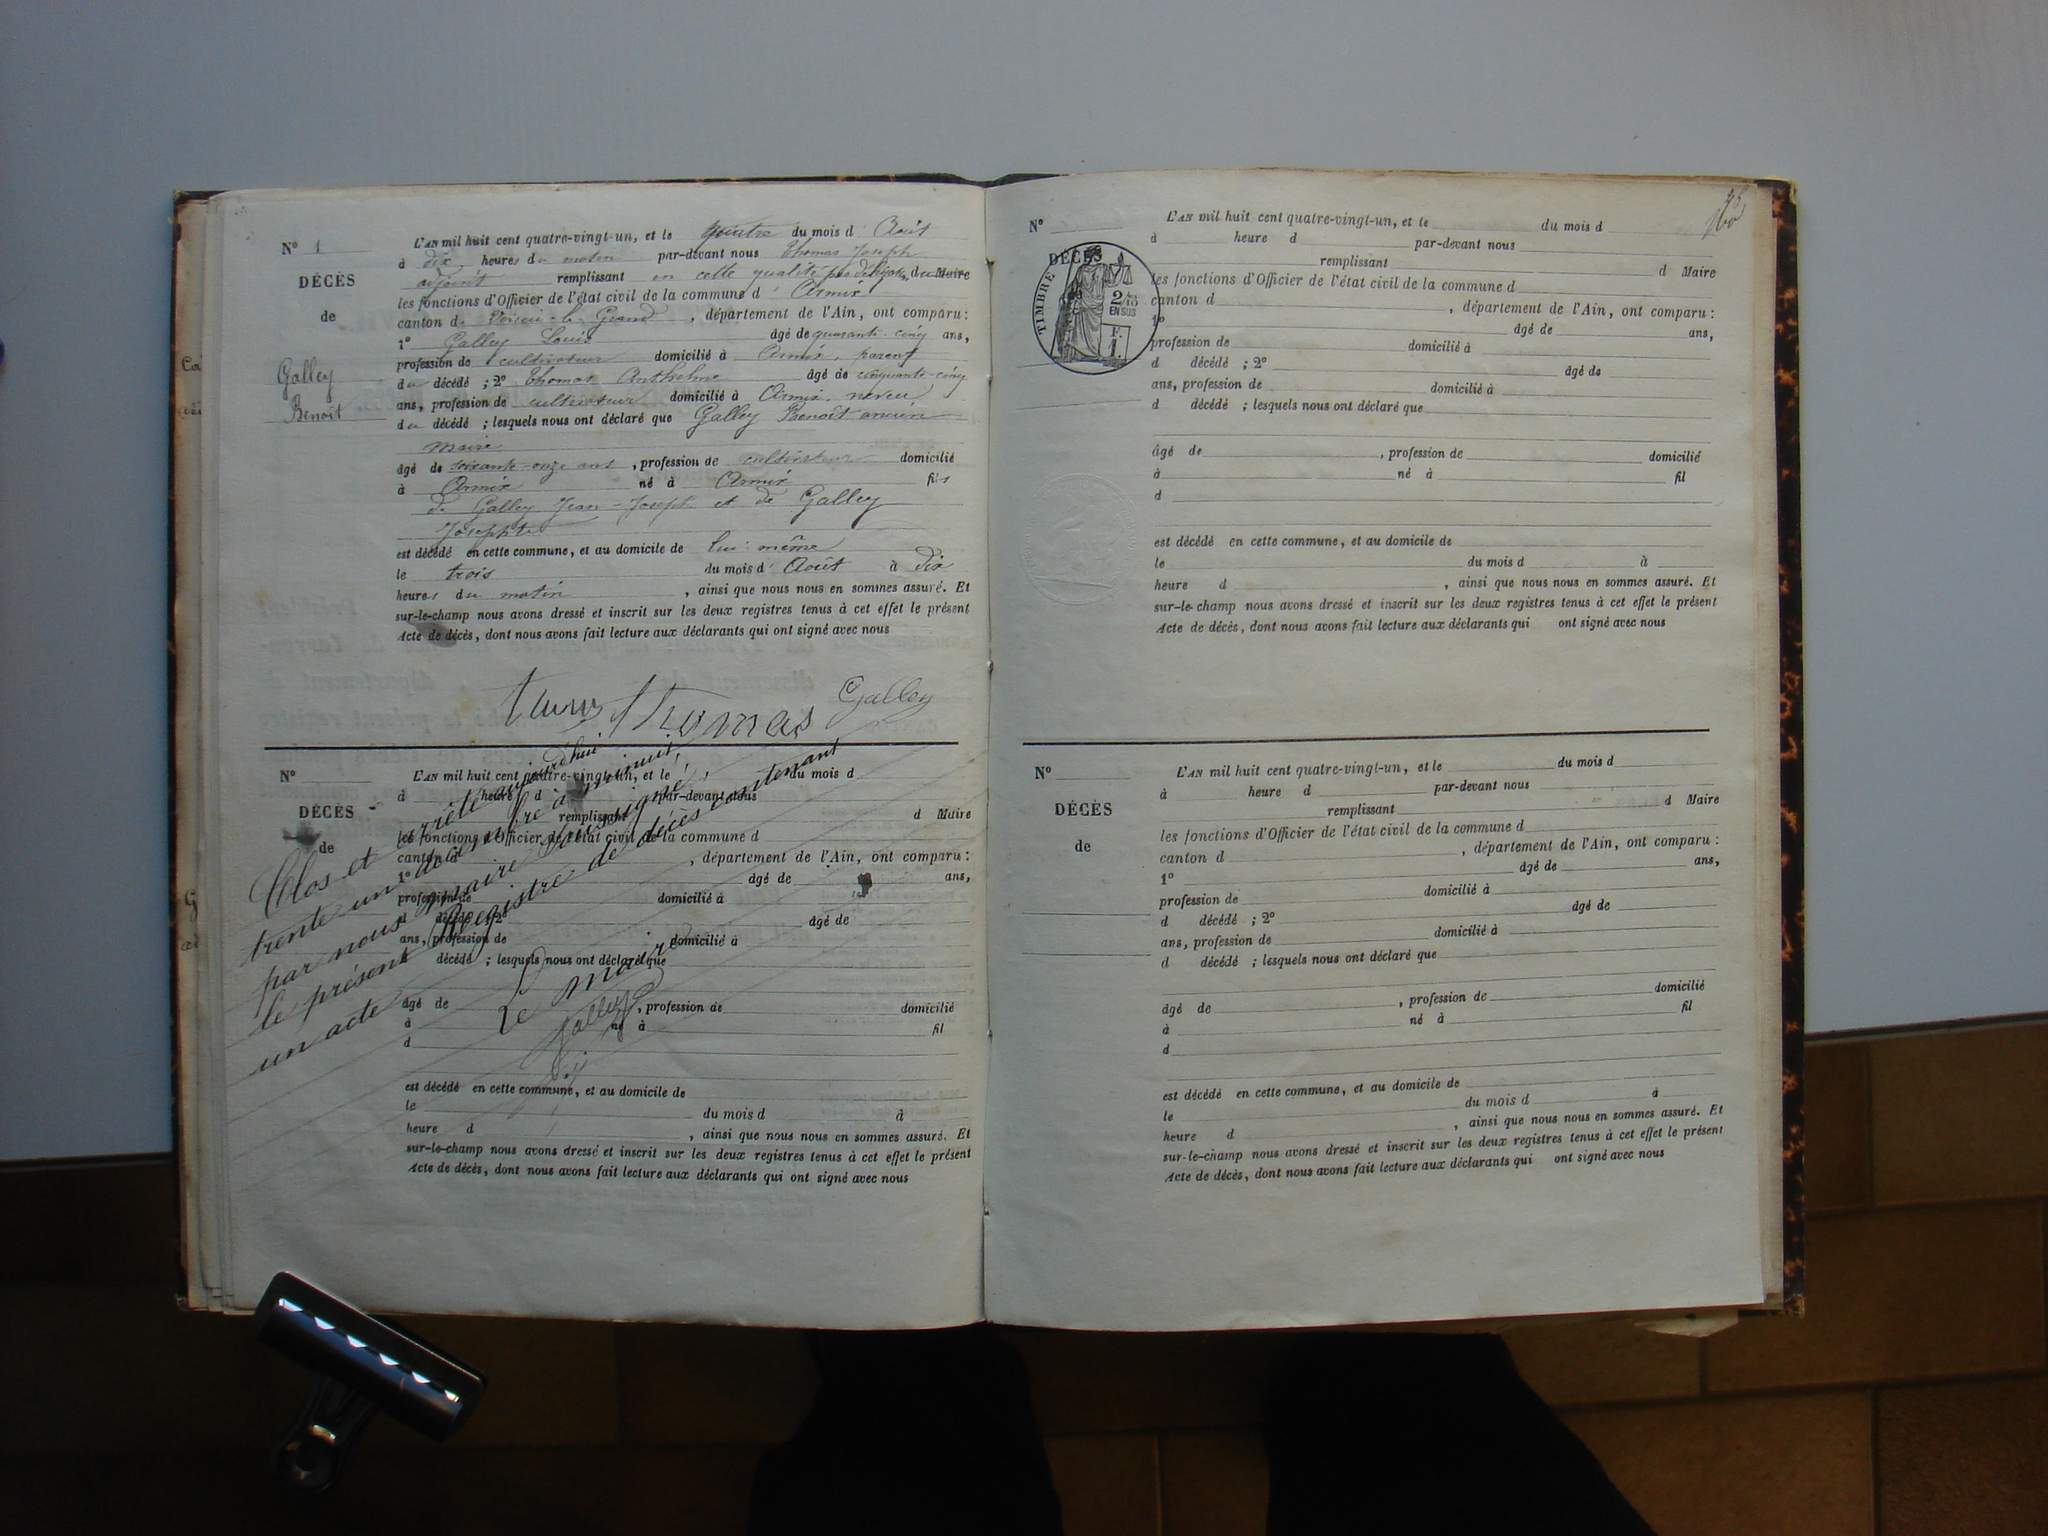 N° 1
DÉCÈS
de
Galley
Benoit
L'AN mil huit cent quatre-vingt-un, et le quatre du mois d'Août
à dix heures du matin par-devant nous Thomas Joseph
adjoint remplissant en cette qualité par délégation du Maire
les fonctions d'Officier de l'état civil de la commune d'Armix
canton de Virieu-le-Grand, département de l'Ain, ont comparu :
1° Galley Louis âgé de quarante-cinq ans,
profession de cultivateur domicilié à Armix, parent
du décédé ; 2° Thomas Anthelme âgé de cinquante-cinq
ans, profession de cultivateur domicilié à Armix, neveu
du décédé ; lesquels nous ont déclaré que Galley Benoit ancien
maire
âgé de soixante-onze ans, profession de cultivateur domicilié
à Armix né à Armix fils
de Galley Jean-Joseph et de Galley
Josephte
est décédé en cette commune, et au domicile de lui-même
le trois du mois d'Août à dix
heures du matin, ainsi que nous nous en sommes assuré. Et
sur-le-champ nous avons dressé et inscrit sur les deux registres tenus à cet effet le présent
Acte de décès, dont nous avons fait lecture aux déclarants qui ont signé avec nous
Thomas Galley
N°
DÉCÈS
de
L'AN mil huit cent quatre-vingt-un, et le du mois d
à heure d par-devant nous
remplissant d Maire
les fonctions d'Officier de l'état civil de la commune d
canton d , département de l'Ain, ont comparu :
1° âgé de ans,
profession de domicilié à
d décédé ; 2° âgé de
ans, profession de domicilié à
décédé ; lesquels nous ont déclaré que
âgé de , profession de domicilié
à né à fil
d
est décédé en cette commune, et au domicile de
le du mois d à
heure d , ainsi que nous nous en sommes assuré. Et
sur-le-champ nous avons dressé et inscrit sur les deux registres tenus à cet effet le présent
Acte de décès, dont nous avons fait lecture aux déclarants qui ont signé avec nous
Clos et arrêté aujourd'hui
trente un décembre à minuit,
par nous maire soussigné,
le présent Registre de décès contenant
un acte
Le maire
Galley
N°
DÉCÈS
TIMBRE
2/10
EN SUS
F.
1.
L'AN mil huit cent quatre-vingt-un, et le du mois d
à heure d par-devant nous
remplissant d Maire
les fonctions d'Officier de l'état civil de la commune d
canton d , département de l'Ain, ont comparu :
1° âgé de ans,
profession de domicilié à
d décédé ; 2° âgé de
ans, profession de domicilié à
d décédé ; lesquels nous ont déclaré que
âgé de , profession de domicilié
à né à fil
d
est décédé en cette commune, et au domicile de
le du mois d à
heure d , ainsi que nous nous en sommes assuré. Et
sur-le-champ nous avons dressé et inscrit sur les deux registres tenus à cet effet le présent
Acte de décès, dont nous avons fait lecture aux déclarants qui ont signé avec nous
N°
DÉCÈS
de
L'AN mil huit cent quatre-vingt-un, et le du mois d
à heure d par-devant nous
remplissant d Maire
les fonctions d'Officier de l'état civil de la commune d
canton d , département de l'Ain, ont comparu :
1° âgé de ans,
profession de domicilié à
d décédé ; 2° âgé de
ans, profession de domicilié à
d décédé ; lesquels nous ont déclaré que
âgé de , profession de domicilié
à né à fil
d
est décédé en cette commune, et au domicile de
le du mois d à
heure d , ainsi que nous nous en sommes assuré. Et
sur-le-champ nous avons dressé et inscrit sur les deux registres tenus à cet effet le présent
Acte de décès, dont nous avons fait lecture aux déclarants qui ont signé avec nous